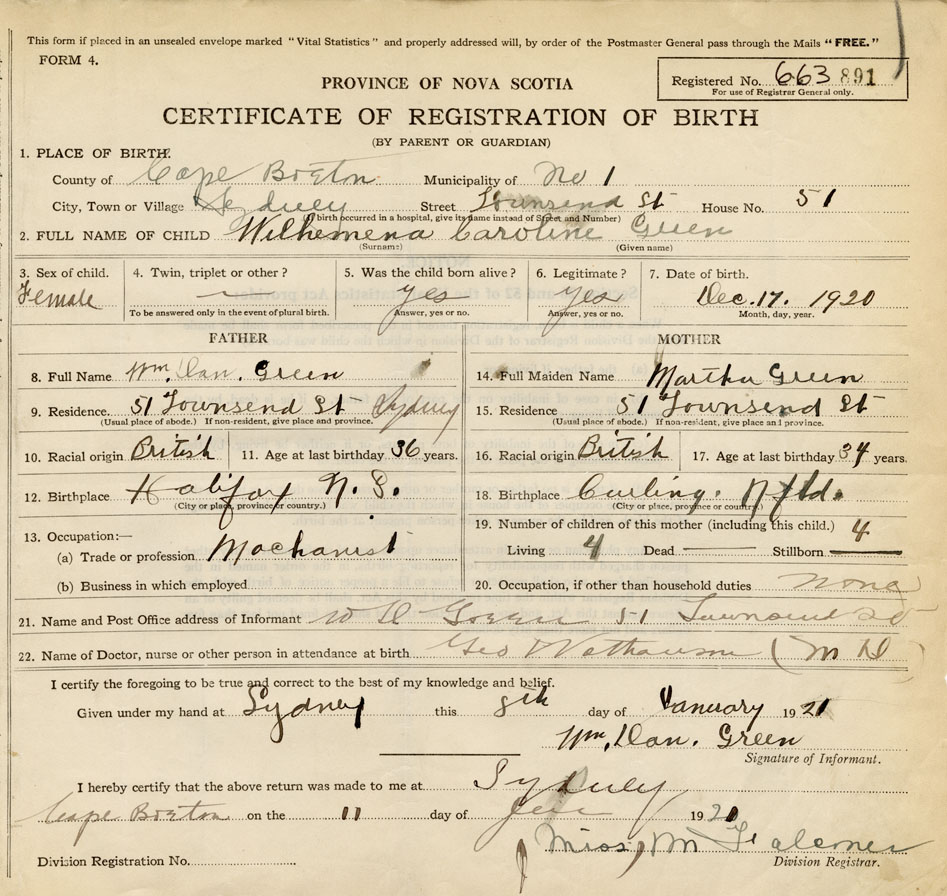 This form if placed in an unsealed envelope marked "Vital Statistics" and properly addressed will, by order of the Postmaster General pass through the Mails "FREE."
FORM 4.
Registered No. 663 891
For use of Registrar General only.
PROVINCE OF NOVA SCOTIA
CERTIFICATE OF REGISTRATION OF BIRTH
(BY PARENT OR GUARDIAN)
1. PLACE OF BIRTH.
County of Cape Breton Municipality of No 1
City, Town or Village Sydney Street Townsend St House No. 51
(If birth occurred in a hospital, give its name instead of Street and Number)
2. FULL NAME OF CHILD Wilhemena Caroline Green
(Surname) (Given name)
3. Sex of child. 4. Twin, triplet or other? 5. Was the child born alive? 6. Legitimate? 7. Date of birth.
Female — yes yes Dec. 17. 1920
To be answered only in the event of plural birth. Answer, yes or no. Answer, yes or no. Month, day, year.
FATHER MOTHER
8. Full Name Wm. Dan. Green 14. Full Maiden Name Martha Green
9. Residence. 51 Townsend St Sydney 15. Residence. 51 Townsend St
(Usual place of abode.) If non-resident, give place and province. (Usual place of abode.) If non-resident, give place and province.
10. Racial origin British 11. Age at last birthday 36 years. 16. Racial origin British 17. Age at last birthday 34 years.
12. Birthplace Halifax N. S. 18. Birthplace Curling. Nfld.
(City or place, province or country.) (City or place, province or country.)
13. Occupation:— 19. Number of children of this mother (including this child.) 4
(a) Trade or profession Machanist Living 4 Dead — Stillborn —
(b) Business in which employed 20. Occupation, if other than household duties none
21. Name and Post Office address of Informant W D Green 51 Townsend St
22. Name of Doctor, nurse or other person in attendance at birth Geo Nathanson (M D)
I certify the foregoing to be true and correct to the best of my knowledge and belief.
Given under my hand at Sydney this 8th day of January 1921
Wm, Dan. Green
Signature of Informant.
I hereby certify that the above return was made to me at Sydney
Cape Breton on the 11 day of 1921
Miss M Falconer
Division Registration No. Division Registrar.